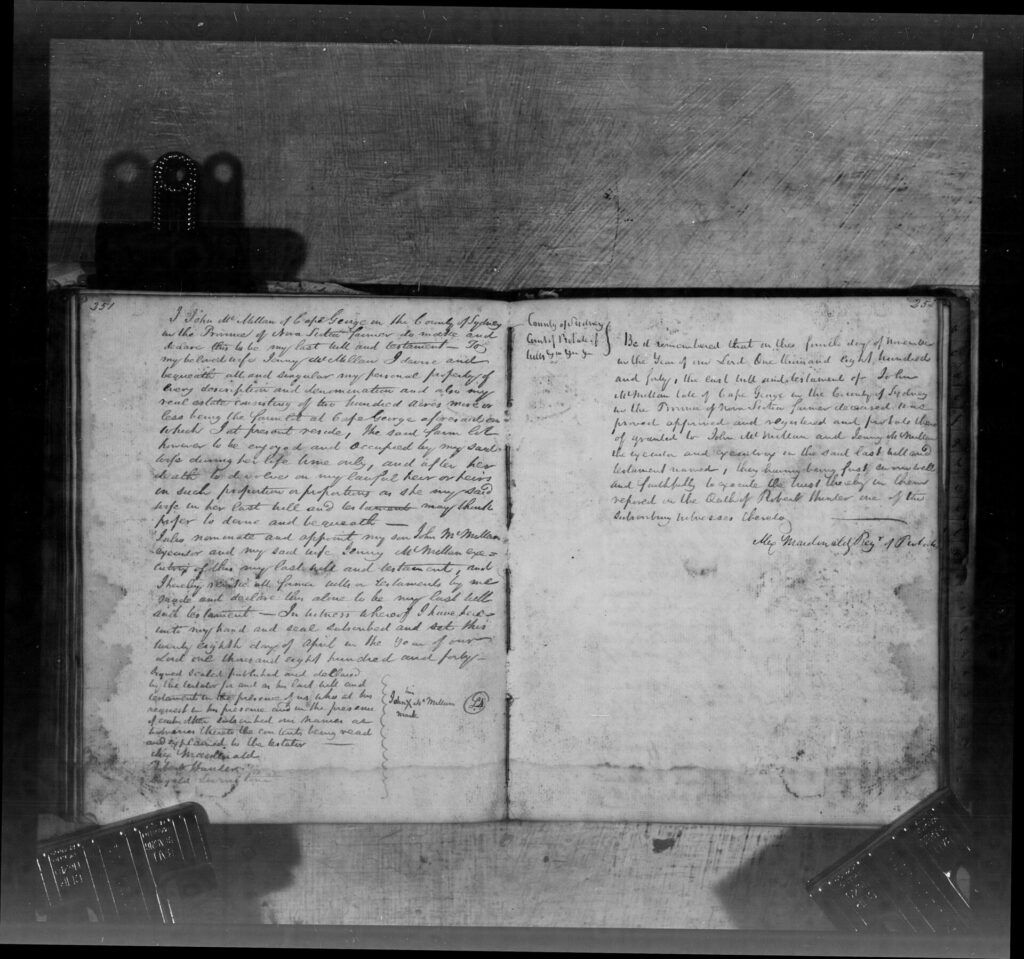 251
I John McMillan of Cape George in the County of Sydney
in the Province of Nova Scotia farmer do make and
declare this to be my last will and testament — To
my beloved wife Jenny McMillan I devise and
bequeath all and singular my personal property of
every description and denomination and also my
real estate consisting of two hundred acres more or
less being the farm lot at Cape George aforesaid, on
which I at present reside, The said farm lot
however to be enjoyed and occupied by my said
wife during her life time only, and after her
death to devolve on my lawful heir or heirs
in such proportion or proportions as she my said
wife in her last will and testament may think
proper to devise and bequeath —
I also nominate and appoint my son John McMillan
executor and my said wife Jenny McMillan exe=
cutrix of this my last will and testament, and
I hereby revoke all former wills or testaments by me
made and declare this alone to be my last will
and testament — In witness whereof I have here=
unto my hand and seal subscribed and set this
twenty eighth day of April in the Year of our
Lord one thousand eight hundred and forty —
Signed sealed published and declared
by the testator for and as his last will and
testament in the presence of us who at his
request in his presence and in the presence
of each other subscribed our names as
witnesses thereto the contents being read
and explained to the testator —
Alex Macdonald
Robert Hunter
his
John X McMillan
mark
LS
County of Sydney
Court of Probate of
Wills
Be it remembered that on this fourth day of November
in the Year of our Lord One thousand eight hundred
and forty, the last will and testament of John
McMillan late of Cape George in the County of Sydney
in the Province of Nova Scotia farmer deceased was
proved approved and registered and probate there
of granted to John McMillan and Jenny McMillan
the executor and executrix in the said last will and
testament named, they having being first sworn well
and faithfully to execute the trust thereby in them
reposed on the Oath of Robert Hunter one of the
subscribing witnesses thereto
Alex Macdonald Regr of Probate